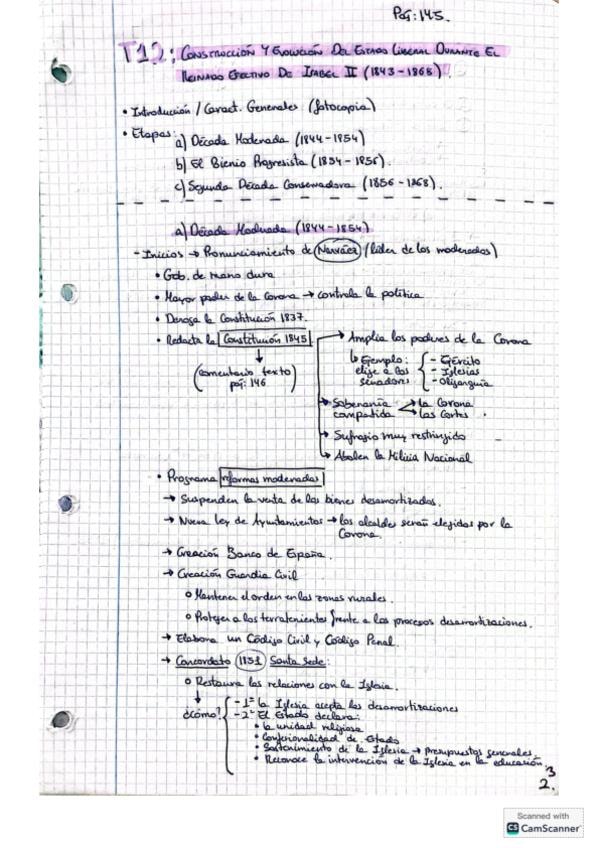 Pág: 145.
T12: CONSTRUCCIÓN Y EVOLUCIÓN DEL ESTADO LIBERAL DURANTE EL
REINADO EFECTIVO DE ISABEL II (1843-1868).
• Introducción / Caract. Generales (fotocopia)
• Etapas:
a) Década Moderada (1844-1854)
b) El Bienio Progresista (1854-1856).
c) Segunda Década Conservadora (1856-1868).
a) Década Moderada (1844-1854)
- Inicios → Pronunciamiento de Narváez (líder de los moderados)
• Gob. de mano dura
• Mayor poder de la Corona → controla la política
• Deroga la Constitución 1837.
• Redacta la Constitución 1845 → Amplia los poderes de la Corona
↳ Ejemplo: elije a los senadores { - Ejército
- Iglesias
- Oligarquía
(comentario texto pág: 146)
→ Soberanía compartida → la Corona
→ las Cortes.
→ Sufragio muy restringido
→ Abolen la Milicia Nacional
• Programa reformas moderadas
→ Suspenden la venta de los bienes desamortizados.
→ Nueva Ley de Ayuntamientos → los alcalde serán elegidos por la
Corona.
→ Creación Banco de España.
→ Creación Guardia Civil
o Mantener el orden en las zonas rurales.
o Proteger a los terratenientes frente a los procesos desamortizaciones.
→ Elabora un Código Civil y Código Penal.
→ Concordato 1851 Santa Sede:
o Restaura las relaciones con la Iglesia.
↓
¿cómo? { - 1º la Iglesia acepta las desamortizaciones
- 2º El Estado declara:
• la unidad religiosa
• Confesionalidad de Estado
• Sostenimiento de la Iglesia → presupuestos generales.
• Reconoce la intervención de la Iglesia en la educación.
3
2.
Scanned with
CS CamScanner